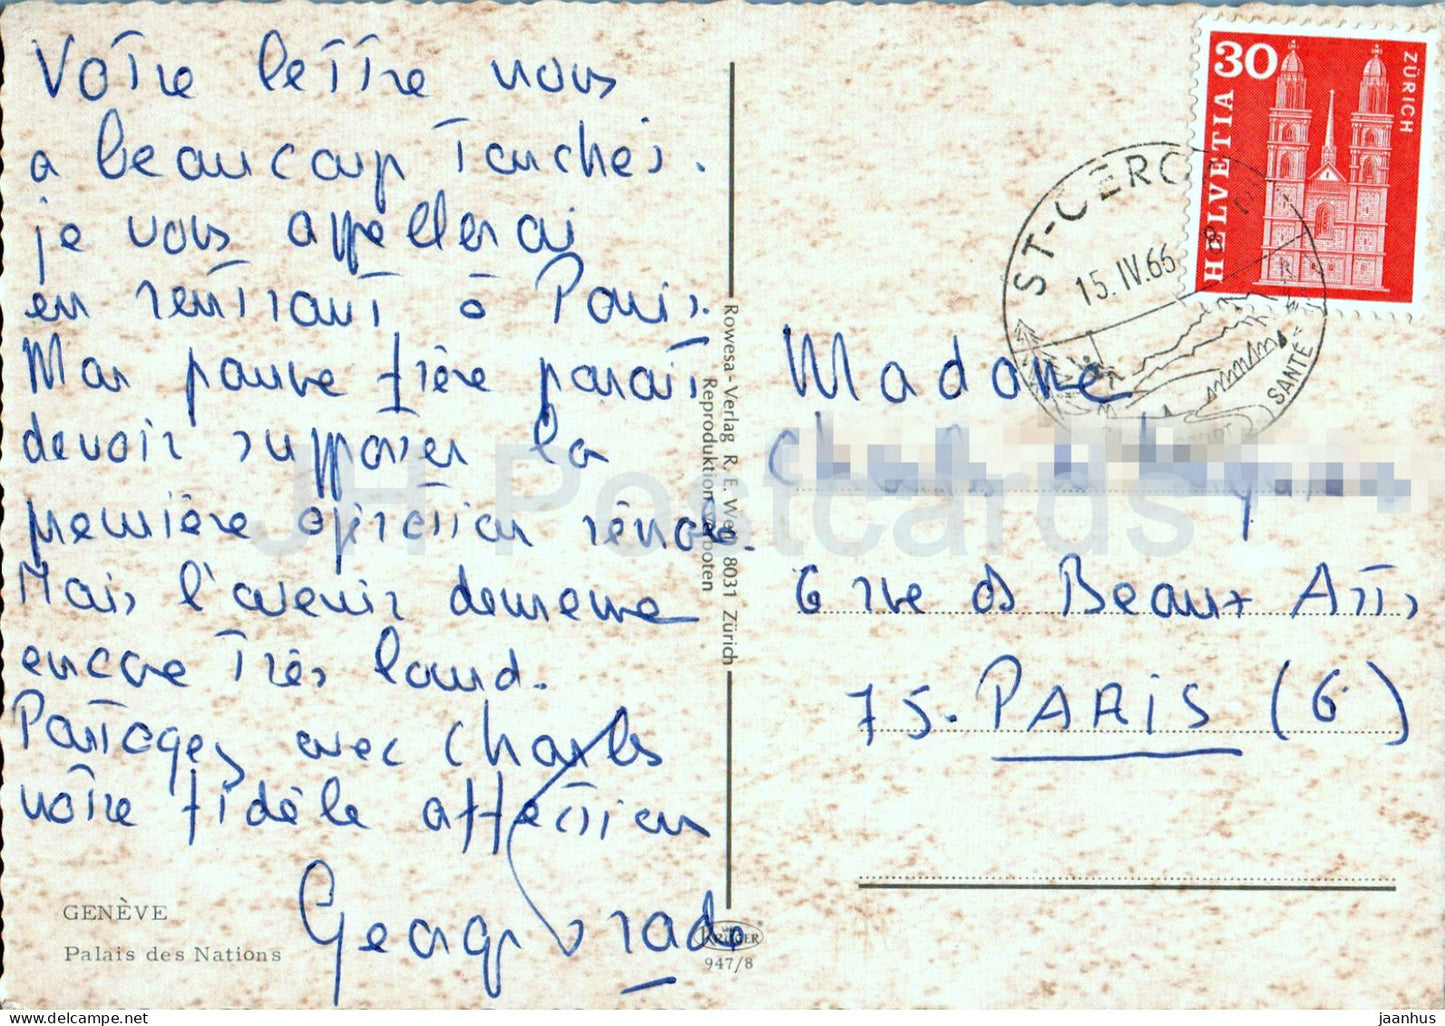 Votre lettre nous
a beaucoup touchés.
je vous appellerai
en rentrant à Paris.
Mon pauvre frère parait
devoir supposer la
première opération rénale.
Mais l'avenir demeure
encore très lourd.
Partagez avec Charles
notre fidèle affection
George
GENÈVE
Palais des Nations
Rowesa-Verlag R. E. 8031 Zürich
Reproduktion verboten
KRÜGER
947/8
HELVETIA
30
ZÜRICH
ST-CERG
15.IV.66
SANTÉ
SPORT
Madame
6 rue ds Beaux Arts
75. PARIS (6)
JH Postcards
jaanhus — https://www.delcampe.net